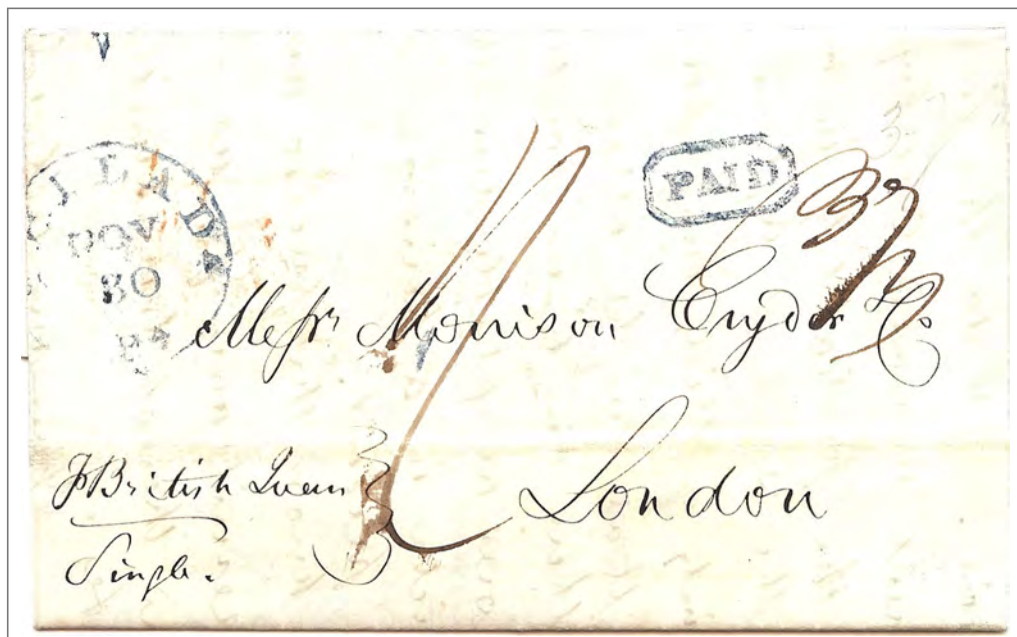 PAID
PHILADA
NOV
30
Pa
Messrs Morrison Cryder & Co
London
P British Queen
Single.